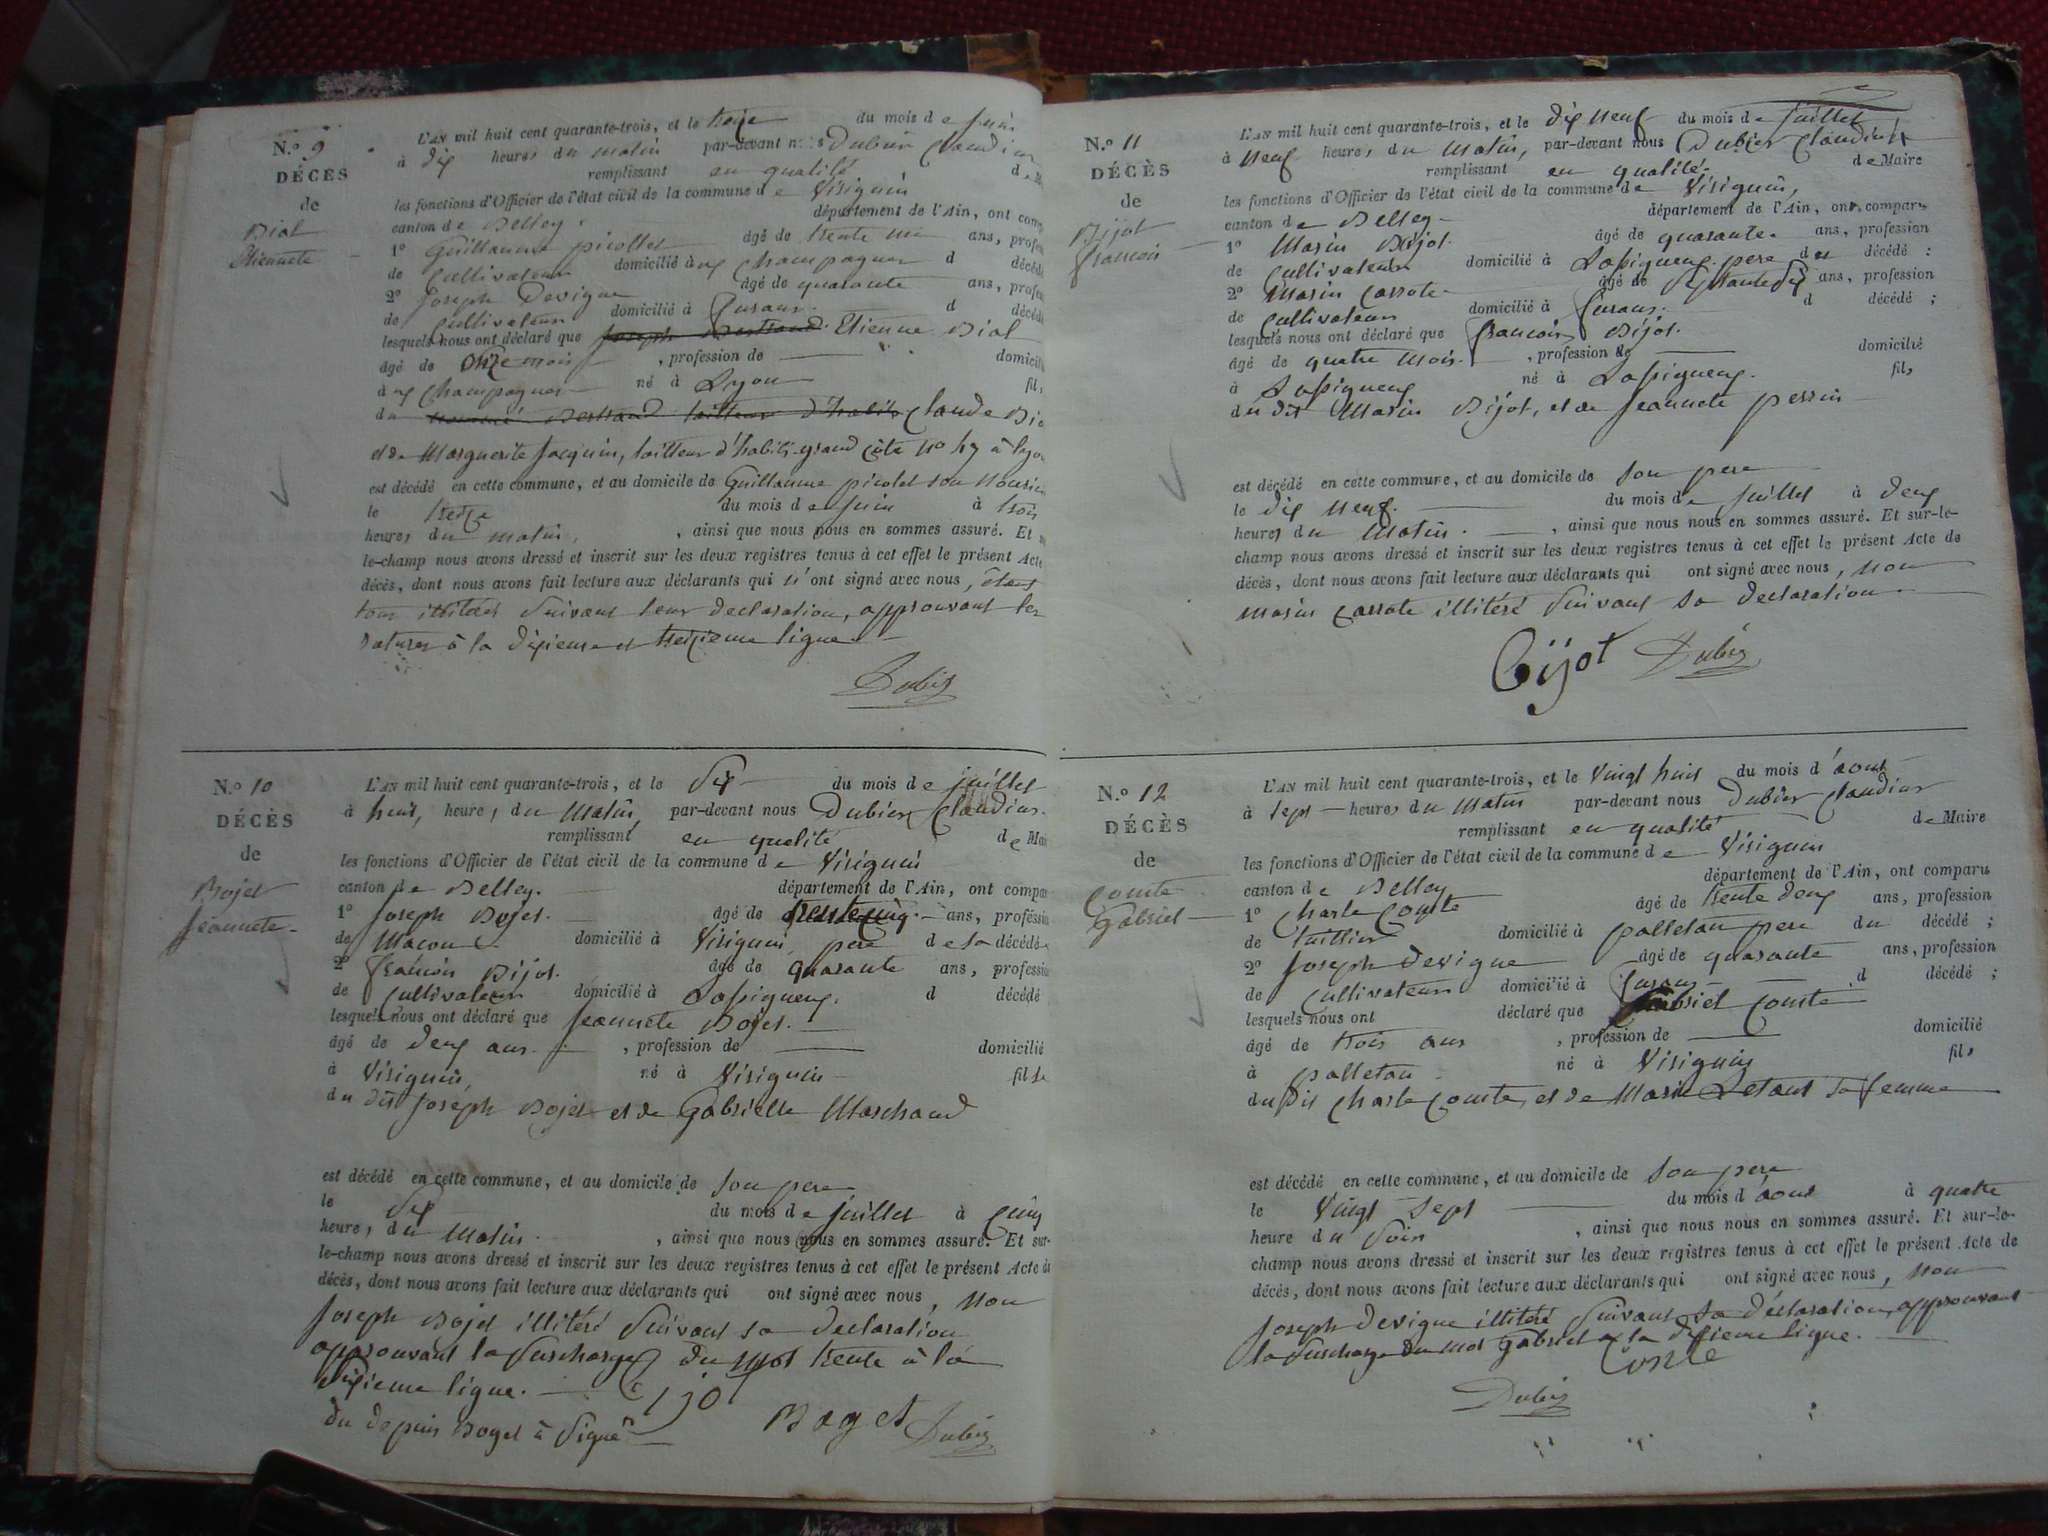 N.o 9
DÉCÈS
de
Bial
Etiennete
L'AN mil huit cent quarante-trois, et le treize du mois de juin
à dix heures du matin par-devant nous Dubier Claudius
remplissant en qualité de
les fonctions d'Officier de l'état civil de la commune de Virignin
canton de Belley. département de l'Ain, ont comp
1o Guillaume picollet âgé de trente un ans, profes
de Cultivateur domicilié à Champagne d décédé
2o Joseph Devigne âgé de quarante ans, profes
de Cultivateur domicilié à Lusans d décédé
lesquels nous ont déclaré que Joseph Bertrand Etienne Bial
âgé de onze mois , profession de domicilié
à Champagne né à Lyon fils
du Bertrand tailleur d'habits Claude Bia
et de Marguerite Jacquin, tailleur d'habits grand côte no à lyon
est décédé en cette commune, et au domicile de Guillaume picolet son
le treize du mois de juin à trois
heures du matin , ainsi que nous nous en sommes assuré. Et
le-champ nous avons dressé et inscrit sur les deux registres tenus à cet effet le présent Acte
décès, dont nous avons fait lecture aux déclarants qui n'ont signé avec nous, étant
tous illitéré Suivant leur declaration, approuvant les
ratures à la dixieme et treizieme ligne.
Dubier
N.o 10
DÉCÈS
de
Bojet
Jeannete
L'AN mil huit cent quarante-trois, et le Six du mois de juillet
à huit, heures du Matin, par-devant nous Dubier Claudius
remplissant en qualité de Mai
les fonctions d'Officier de l'état civil de la commune de Virignin
canton de Belley. département de l'Ain, ont compar
1o Joseph Bojet. âgé de trente cinq ans, profession
de Macon domicilié à Virignin pere de la décédée
2o françois Bijot. âgé de quarante ans, profession
de Cultivateur domicilié à Lapigneux. d décédé
lesquels nous ont déclaré que Jeannete Bojet.
âgé de deux ans , profession de domicilié
à Virignin, né à Virignin fille
du dit Joseph Bojet et de Gabrielle Marchand
est décédé en cette commune, et au domicile de son pere
le Six du mois de juillet à Cinq
heures du Matin. , ainsi que nous nous en sommes assuré. Et sur-
le-champ nous avons dressé et inscrit sur les deux registres tenus à cet effet le présent Acte de
décès, dont nous avons fait lecture aux déclarants qui ont signé avec nous, non
Joseph Bojet illitéré Suivant sa declaration
approuvant la Surcharge du mot trente à la
Sixieme ligne.
Bijot
du depuis Boget à Signé
Boget Dubier
N.o 11
DÉCÈS
de
Bijot
francois
L'AN mil huit cent quarante-trois, et le dix neuf du mois de juillet
à neuf heures du Matin, par-devant nous Dubier Claudius
remplissant en qualité de Maire
les fonctions d'Officier de l'état civil de la commune de Virignin,
canton de Belley département de l'Ain, ont comparu
1o Marin Bijot. âgé de quarante ans, profession
de Cultivateur domicilié à Lapigneux pere du décédé ;
2o Marin Carrote âgé de Soixante dix ans, profession
de Cultivateur domicilié à Lusans d décédé ;
lesquels nous ont déclaré que françois Bijot.
âgé de quatre mois , profession de domicilié
à Lapigneux né à Lapigneux. fils
du dit Marin Bijot, et de Jeannete perrin
est décédé en cette commune, et au domicile de son pere
le dix neuf du mois de juillet à deux
heures du Matin. , ainsi que nous nous en sommes assuré. Et sur-le-
champ nous avons dressé et inscrit sur les deux registres tenus à cet effet le présent Acte de
décès, dont nous avons fait lecture aux déclarants qui ont signé avec nous, non
marin Carrote illitéré Suivant sa declaration.
Bijot Dubier
N.o 12
DÉCÈS
de
Comte
Gabriel
L'AN mil huit cent quarante-trois, et le Vingt huit du mois d'aout
à sept heures du Matin par-devant nous Dubier Claudius
remplissant en qualité de Maire
les fonctions d'Officier de l'état civil de la commune de Virignin
canton de Belley département de l'Ain, ont comparu
1o Charle Comte âgé de trente deux ans, profession
de tuillier domicilié à palletan pere du décédé ;
2o Joseph Devigne âgé de quarante ans, profession
de Cultivateur domicilié à Lusans d décédé ;
lesquels nous ont déclaré que Gabriel Comte
âgé de trois ans , profession de domicilié
à palletan né à Virignin fils
du dit Charle Comte, et de Marie Letant sa femme
est décédé en cette commune, et au domicile de son pere
le Vingt Sept du mois d'aout à quatre
heure du Soir , ainsi que nous nous en sommes assuré. Et sur-le-
champ nous avons dressé et inscrit sur les deux registres tenus à cet effet le présent Acte de
décès, dont nous avons fait lecture aux déclarants qui ont signé avec nous, non
Joseph Devigne illitéré Suivant sa déclaration, approuvant
la surcharge du mot Gabriel a la dixieme ligne.
Conte
Dubier